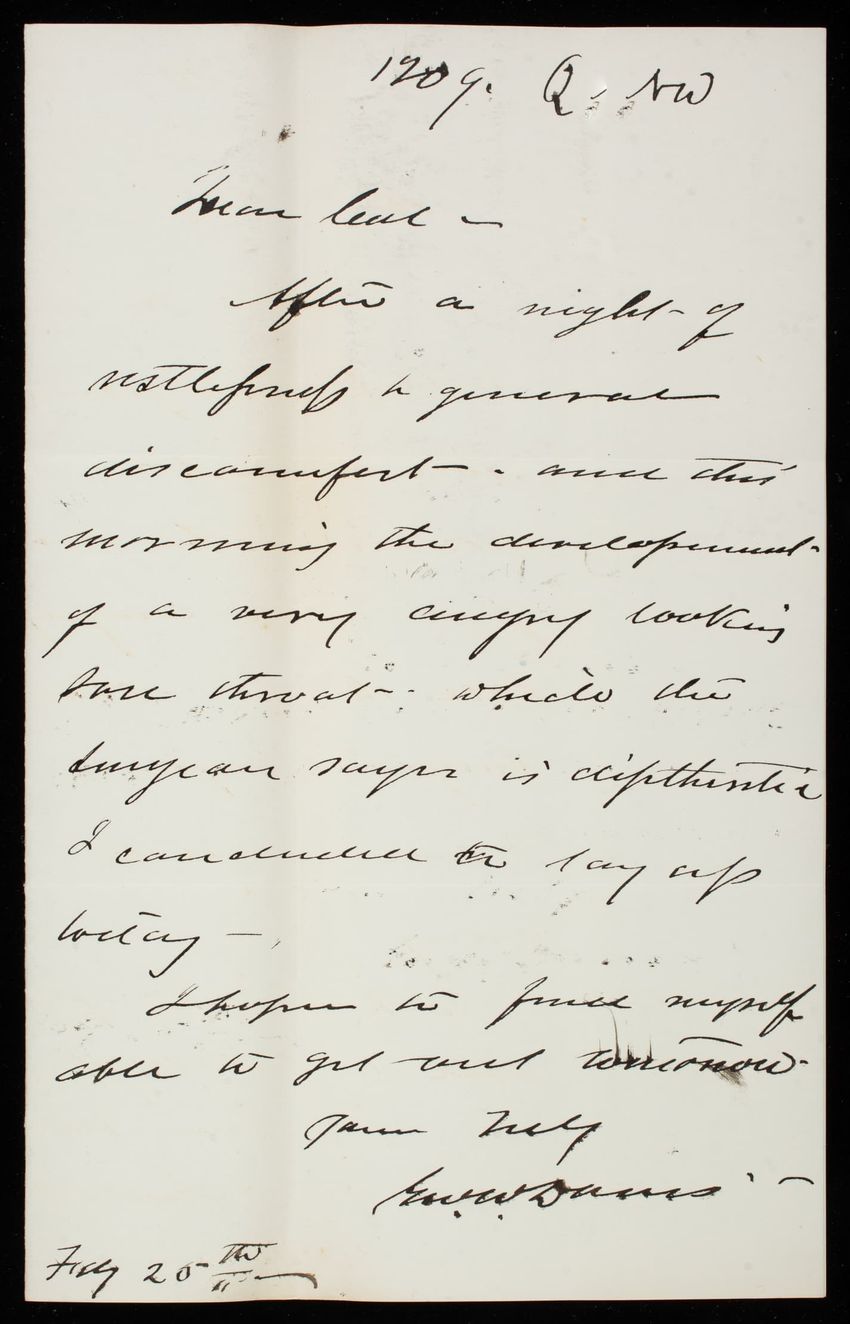 1909. Q. NW
Dear Col –
After a night of
restlessness & general
discomfort – and this
morning the development
of a very angry looking
sore throat – which the
surgeon says is diptheritic
I concluded to lay up
today –
I hope to find myself
able to get out tomorrow –
Yours truly
Geo. W. Davis –
Feby 25th